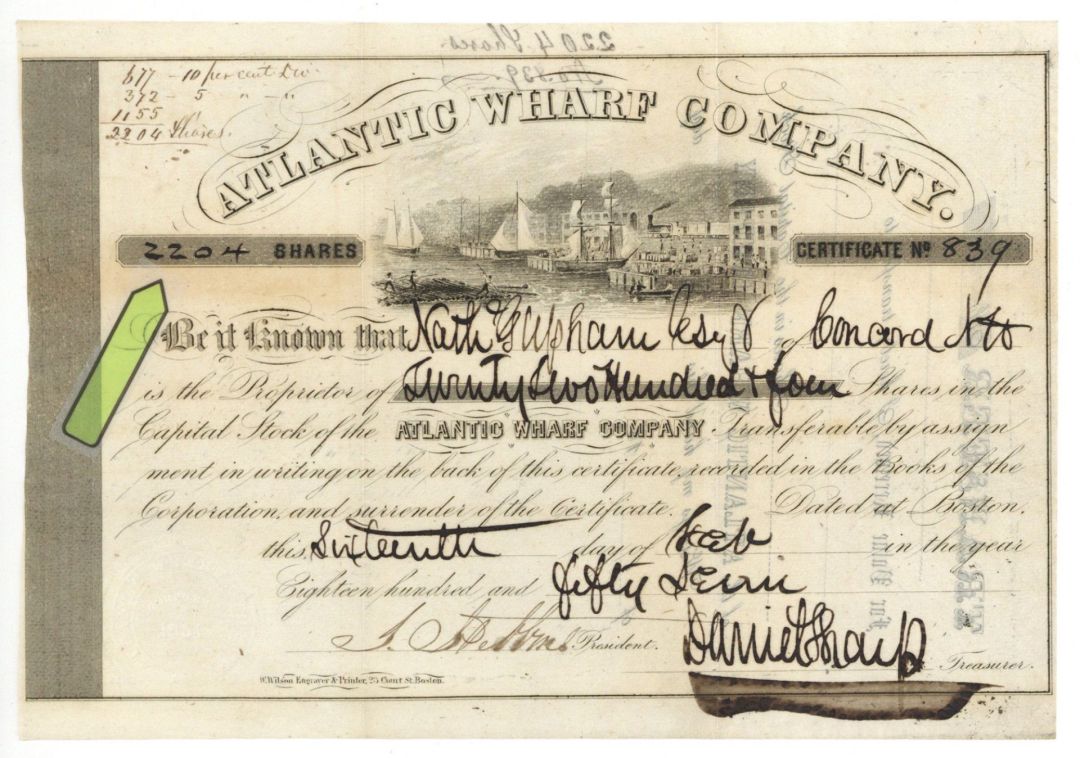 2204 Shares
No. 839.
677 - 10 per cent Div.
372 - 5 " - "
1155
2204 Shares.
ATLANTIC WHARF COMPANY.
2204 SHARES
CERTIFICATE No 839
Be it Known that Nath G Upham Esqr of Concord NH
is the Proprietor of Twenty two Hundred & four Shares in the
Capital Stock of the ATLANTIC WHARF COMPANY Transferable by assign
ment in writing on the back of this certificate, recorded in the Books of the
Corporation, and surrender of the Certificate. Dated at Boston,
this Sixteenth day of Feb in the year
Eighteen hundred and fifty Seven
President.
Daniel Sharp Treasurer.
W. Wilson Engraver & Printer, 25 Court St. Boston.